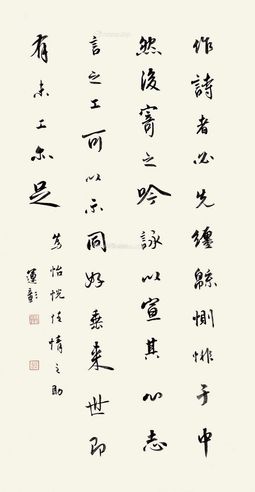 作詩者必先纏緜惻悱于中
然後寄之吟詠以宣其心志
言之工可以示同好垂來世即
有未工亦足
為怡悅性情之助